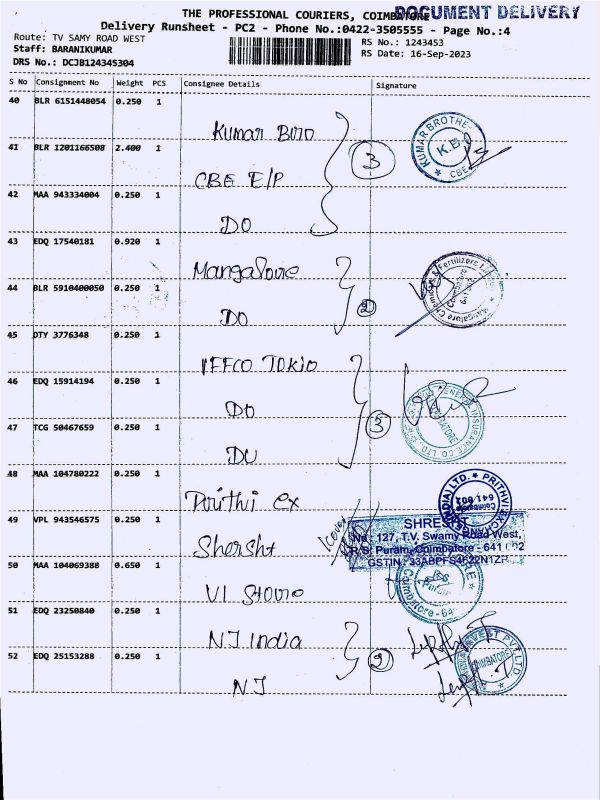 THE PROFESSIONAL COURIERS, COIMBATORE
DOCUMENT DELIVERY
Delivery Runsheet - PC2 - Phone No.:0422-3505555 - Page No.:4
Route: TV SAMY ROAD WEST
RS No.: 1243453
Staff: BARANIKUMAR
RS Date: 16-Sep-2023
DRS No.: DCJB124345304
S No Consignment No Weight PCS Consignee Details Signature
40 BLR 6151448054 0.250 1
Kumar Bro
KUMAR BROTHE
K.B.
CBE
41 BLR 1201166508 2.400 1
3
CBE E/P
42 MAA 943334004 0.250 1
DO
43 EDQ 17540181 0.920 1
Mangalore
Mangalore Chemicals & Fertilizers Limited
Coimbatore
44 BLR 5910400050 0.250 1
2
DO
45 DTY 3776348 0.250 1
IFFCO TOKIO
46 EDQ 15914194 0.250 1
DO
GENERAL INSURANCE CO. LTD.
COIMBATORE
47 TCG 50467659 0.250 1
3
DO
48 MAA 104780222 0.250 1
Prithi ex
PRITHVI EXCHANGE (INDIA) LTD.
Coimbatore
641 002
49 VPL 943546575 0.250 1
1 cover
SHRESHT
No. 127, T.V. Swamy Road West,
R.S. Puram, Coimbatore - 641 002
GSTIN : 33ABPFS4622N1ZP
Shersht
50 MAA 104069388 0.650 1
VI Store
R.S. Puram
Coimbatore - 64
51 EDQ 23250840 0.250 1
NJ India
INVEST PVT. LTD.
COIMBATORE
52 EDQ 25153288 0.250 1
2
NJ